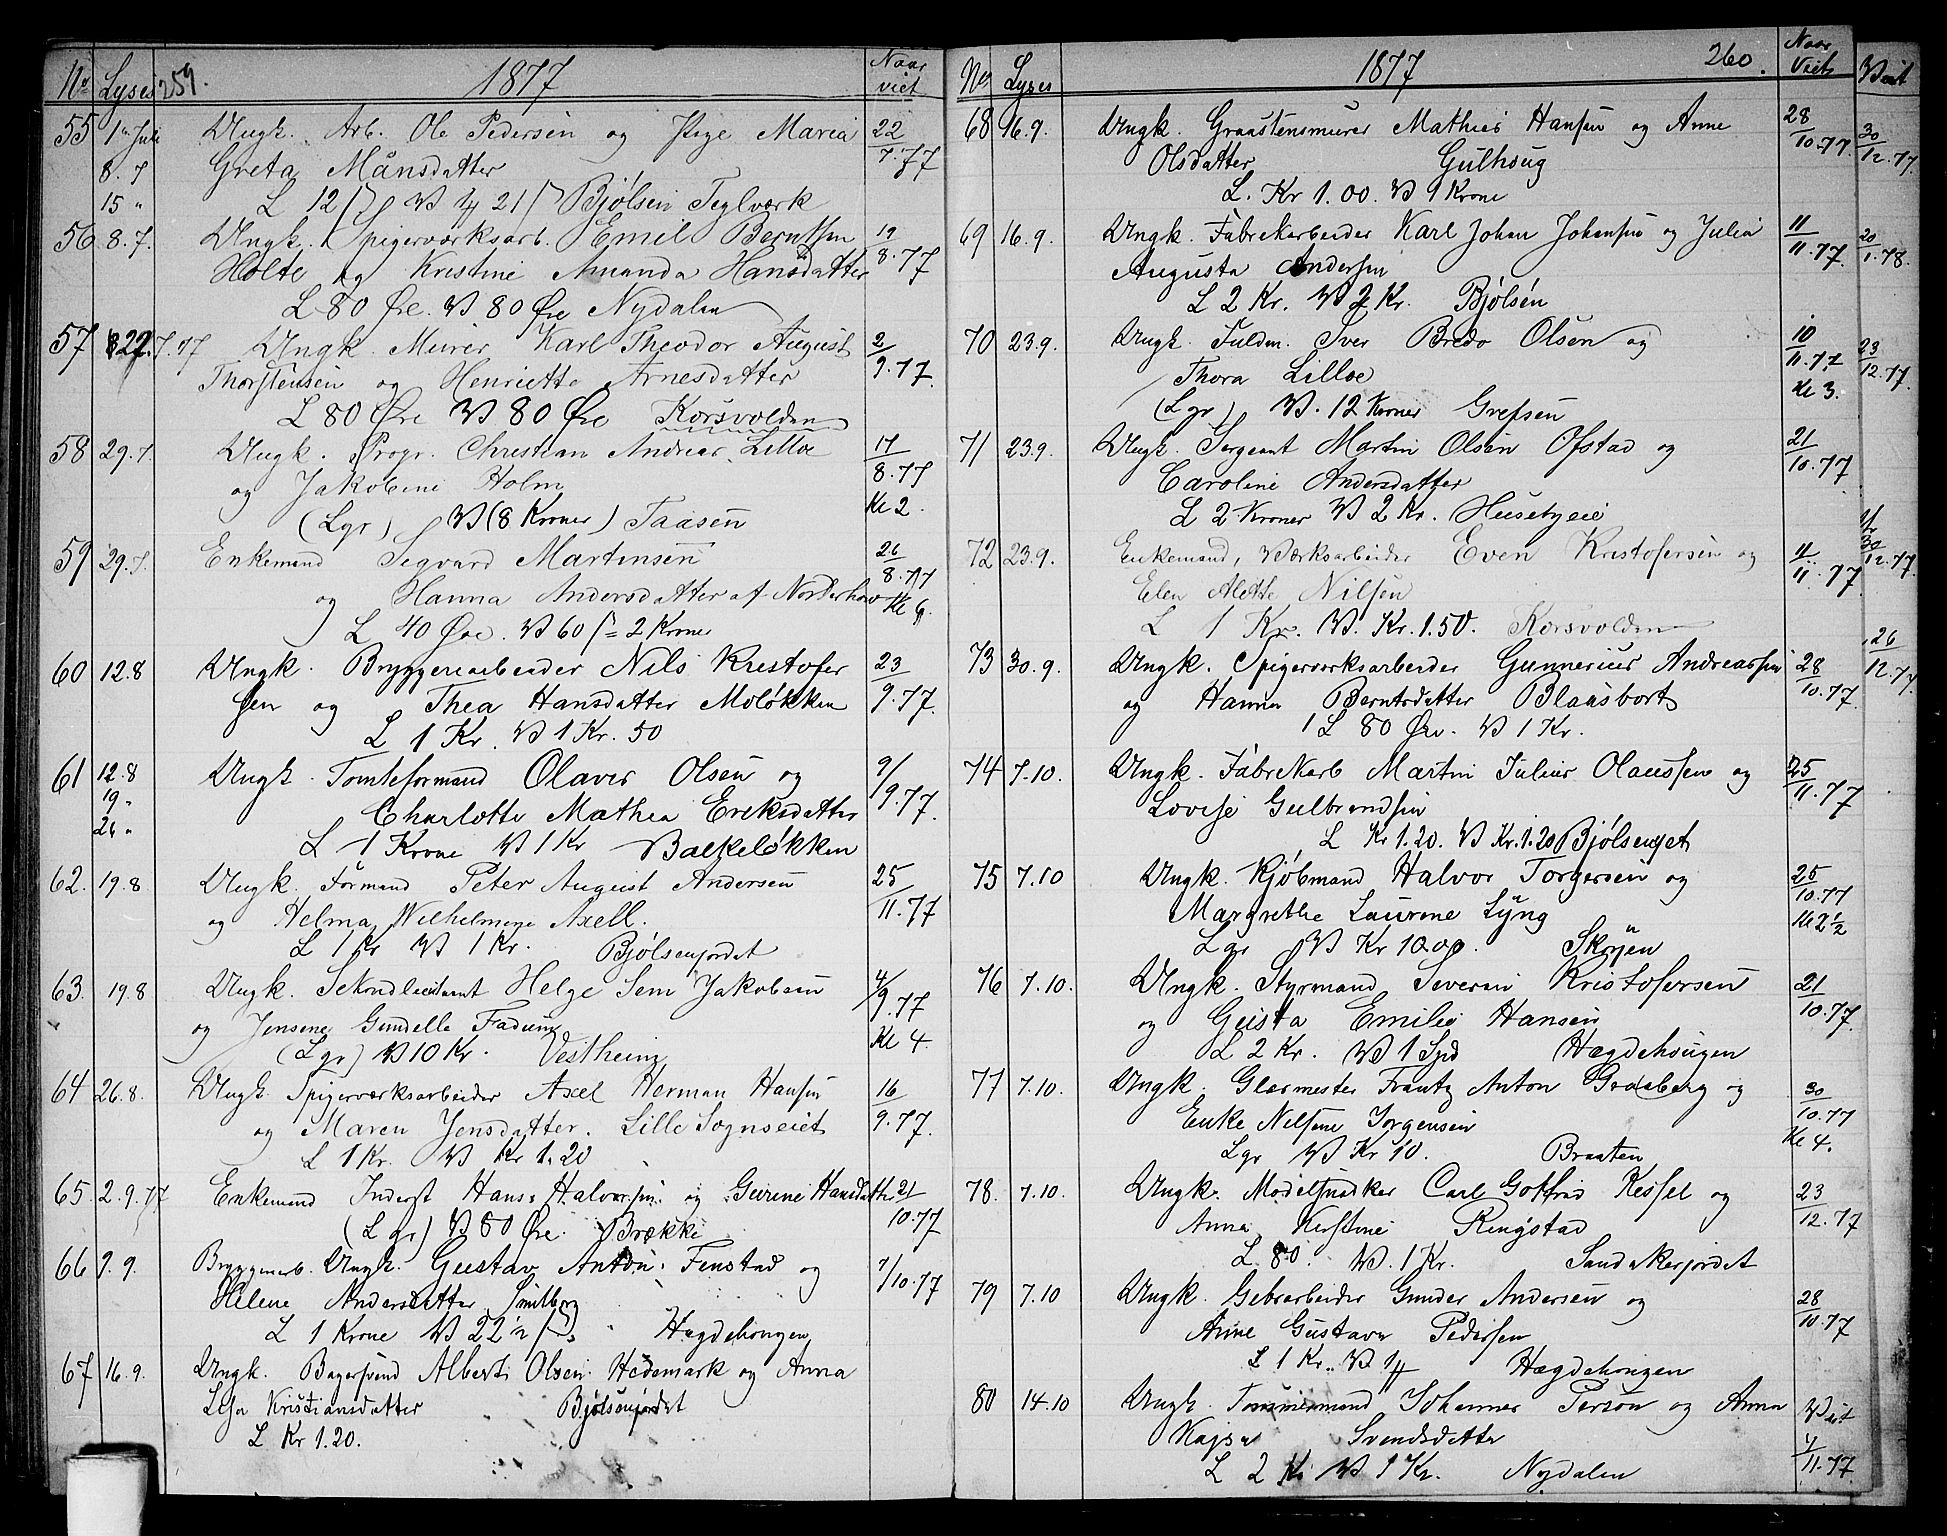 No Lyses 259. 1877 Naar viet
55 1ste Juli Ungk. Arb. Ole Pedersen og Pige Maria 22/7.77
8.7 Greta Månsdatter
15 " L 12 V 21 Bjølsen Teglværk
56 8.7. Ungk. Spigerværksarb. Emil Berntsen 19/8.77
Holte og Kristine Amanda Hansdatter
L 80 Øre. V 80 Øre Nydalen
57 22.7.77 Ungk. Murer Karl Theodor August 2/9.77.
Thorstensen og Henriette Arnesdatter
L 80 Øre V 80 Øre Korsvolden
58 29.7. Ungk. Progr. Christian Andreas Lilloe 17/8.77
og Jakobine Holm Kl 2.
(Lgr) V (8 Kroner) Taasen
59 29.7. Enkemand Sigvard Martinsen 26/8.77
og Hanna Andersdatter af Norderhov Kl 6.
L 40 Øre. V 60 = 2 Kroner
60 12.8 Ungk. Bryggeriarbeider Nils Kristofer 23/9.77.
sen og Thea Hansdatter Moløkken
L 1 Kr. V 1 Kr. 50
61 12.8 Ungk. Tomteformand Olaves Olsen og 9/9.77.
19 " Charlotte Mathea Eriksdatter
26 " L 1 Krone V 1 Kr Balkeløkken
62. 19.8 Ungk. Formand Peter August Andersen 25/11.77
og Helma Wilhelmine Axell.
L 1 Kr V 1 Kr. Bjølsenjordet
63. 19.8 Ungk. Sekondlieutnant Helge Sem Jakobsen 4/9.77
og Jensene Gundelle Fadum Kl 4.
(Lgr) V 10 Kr. Vestheim
64 26.8. Ungk. Spigerværksarbeider Axel Herman Hansen 16/9.77.
og Maren Jensdatter. Lille Sognseiet
L 1 Kr. V Kr 1.20
65 2.9.77 Enkemand Inderst Hans Halvorsen og Gurine Hansdatter 21/10.77
(L gr) V 80 Øre. Brække
66 9.9. Bryggeriarb. Ungk. Gustav Anton Finstad og 7/10.77
Helene Andersdatter Smilborg
L 1 Krone V 22 1/2 Hægdehougen
67 16.9. Ungk. Bagersvend Albert Olsen Hedemark og Anna
Lisa Kristiansdatter Bjølsenjordet
L Kr 1.20.
No Lyses 1877 260. Naar Viet
68 16.9. Ungk. Graastensmurer Mathias Hansen og Anne 28/10.77.
Olsdatter Gulhoug
L. Kr 1.00. V 1 Krone
69 16.9. Ungk. Fabrikarbeider Karl Johan Johansen og Julia 11/11.77.
Augusta Andersen
L 2 Kr. V 2 Kr. Bjølsen
70 23.9. Ungk. Fuldm. Iver Bredo Olsen og 10/11.77
Thora Lilloe Kl 3.
(Lgr) V. 12 Kroner Grefsen
71 23.9. Ungk. Sergeant Martin Olsen Ofstad og 21/10.77
Caroline Andersdatter
L 2 Kroner V 2 Kr. Husebyeie
72 23.9. Enkemand, Værksarbeider Even Kristofersen og 11/11.77
Elen Alette Nilsen
L 1 Kr. V. Kr. 1.50. Korsvolden
73 30.9. Ungk. Spigerværksarbeider Gunnerius Andreassen 28/10.77.
og Hanna Berntsdatter Blaasbort
L 80 Øre. V 1 Kr.
74 7.10. Ungk. Fabrikarb Martin Julius Olaussen og 25/11.77
Lovise Gulbrandsen
L Kr 1.20. V Kr. 1.20 Bjølsenget
75 7.10 Ungk. Kjøbmand Halvor Torgersen og 25/10.77
Margrethe Laurene Lyng Kl 2 1/2
Lgr V Kr 10.00. Skøyen
76 7.10. Ungk. Styrmand Severin Kristofersen 21/10.77.
og Gusta Emilie Hansen
L 2 Kr. V 1 Spd Hægdehougen
77 7.10. Ungk. Glasmester Frantz Anton Graaberg og 30/10.77
Enke Nilsine Jørgensen Kl 4.
Lgr V Kr 10. Braaten
78. 7.10. Ungk. Modelsnedker Carl Gotfrid Kessel og 23/12.77
Anna Kirstine Ringstad
L. 80. V. 1 Kr. Sandakerjordet
79 7.10 Ungk. Gebrarbeider Gunder Andersen og 28/10.77
Anne Gustava Pedersen
L 1 Kr. V 1 Hægdehougen
80 14.10 Ungk. Tømmermand Johannes Persøn og Anna Viet
Kajsa Svendsdatter 4/11.77.
L 2 Kr V 1 Kr. Nydalen
Viet
30/12.77.
20/1.78.
23/12.77.
30/12.77.
26/12.77.